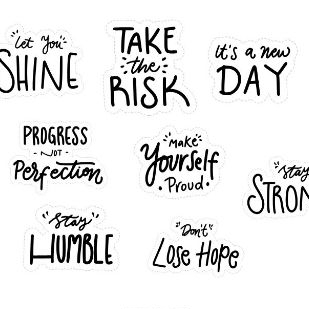 let you
SHINE
TAKE
the
RISK
it's a new
DAY
PROGRESS
- NOT -
Perfection
make
Yourself
• Proud •
"stay
STRON
"stay"
HUMBLE
"Don't"
Lose Hope